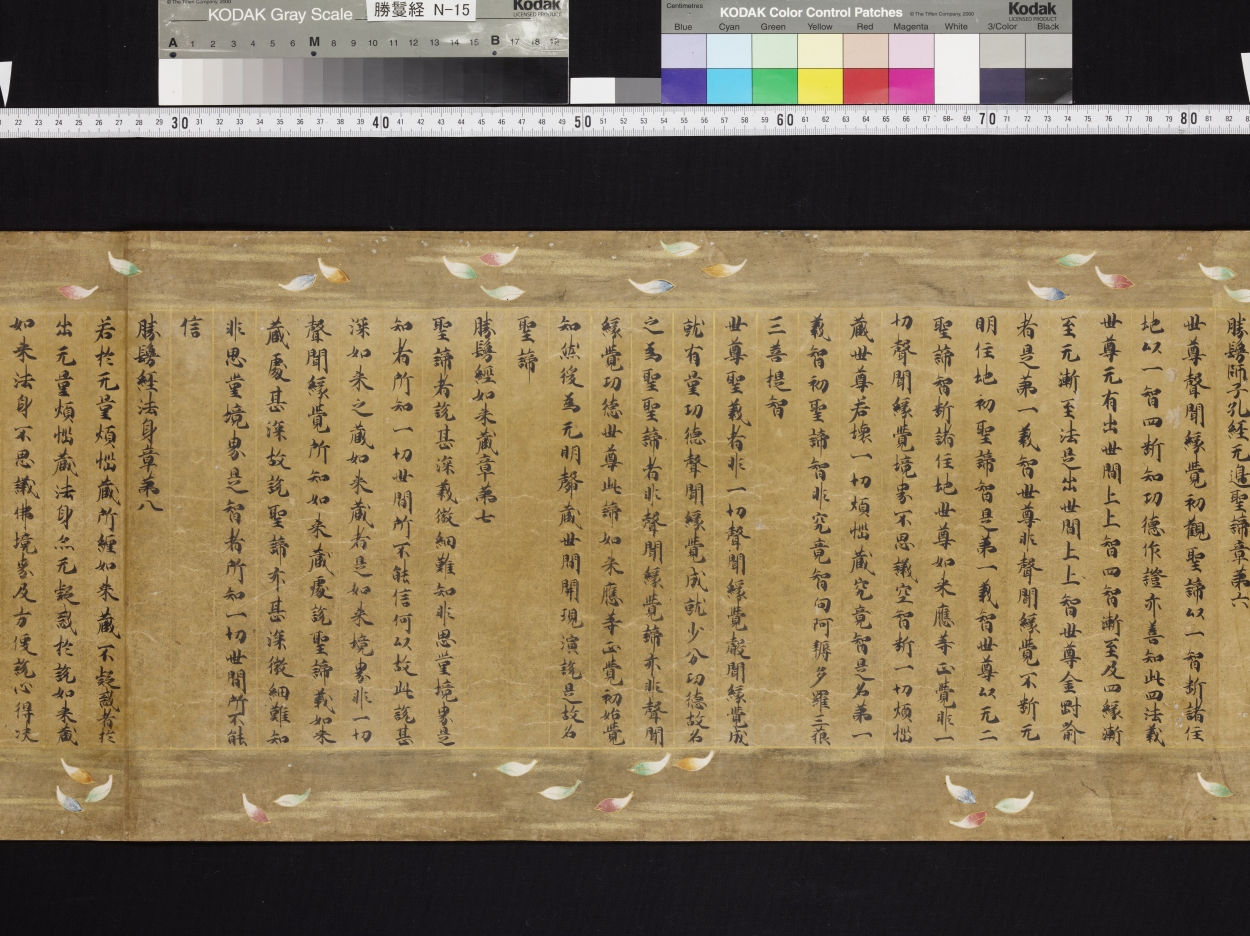 © The Tiffen Company 2000
KODAK Gray Scale
勝鬘経 N-15
Kodak
LICENSED PRODUCT
A 1 2 3 4 5 6 M 8 9 10 11 12 13 14 15 B 17 18 19
Centimetres
KODAK Color Control Patches
© The Tiffen Company 2000
Kodak
LICENSED PRODUCT
Blue Cyan Green Yellow Red Magenta White 3/Color Black
22 23 24 25 26 27 28 29 30 31 32 33 34 35 36 37 38 39 40 41 42 43 44 45 46 47 48 49 50 51 52 53 54 55 56 57 58 59 60 61 62 63 64 65 66 67 68 69 70 71 72 73 74 75 76 77 78 79 80 81 82
勝鬘師子吼經无邊聖諦章第六
世尊聲聞緣覺初觀聖諦以一智斷諸住
地以一智四斷知功德作證亦善知此四法義
世尊无有出世間上上智四智漸至及四緣漸
至无漸至法是出世間上上智世尊金剛喻
者是第一義智世尊非聲聞緣覺不斷无
明住地初聖諦智是第一義智世尊以无二
聖諦智斷諸住地世尊如来應等正覺非一
切聲聞緣覺境界不思議空智斷一切煩惱
藏世尊若壞一切煩惱藏究竟智是名第一
義智初聖諦智非究竟智向阿耨多羅三藐
三菩提智
世尊聖義者非一切聲聞緣覺聲聞緣覺成
就有量功德聲聞緣覺成就少分功德故名
之為聖聖諦者非聲聞緣覺諦亦非聲聞
緣覺功德世尊此諦如来應等正覺初始覺
知然後為无明㲉藏世間開現演說是故名
聖諦
勝鬘經如来藏章第七
聖諦者說甚深義微細難知非思量境界是
知者所知一切世間所不能信何以故此說甚
深如来之藏如来藏者是如来境界非一切
聲聞緣覺所知如来藏處說聖諦義如来
藏處甚深故說聖諦亦甚深微細難知
非思量境界是智者所知一切世間所不能
信
勝鬘經法身章第八
若於无量煩惱藏所纏如来藏不疑惑者於
出无量煩惱藏法身亦无疑惑於說如来藏
如来法身不思議佛境界及方便說心得决